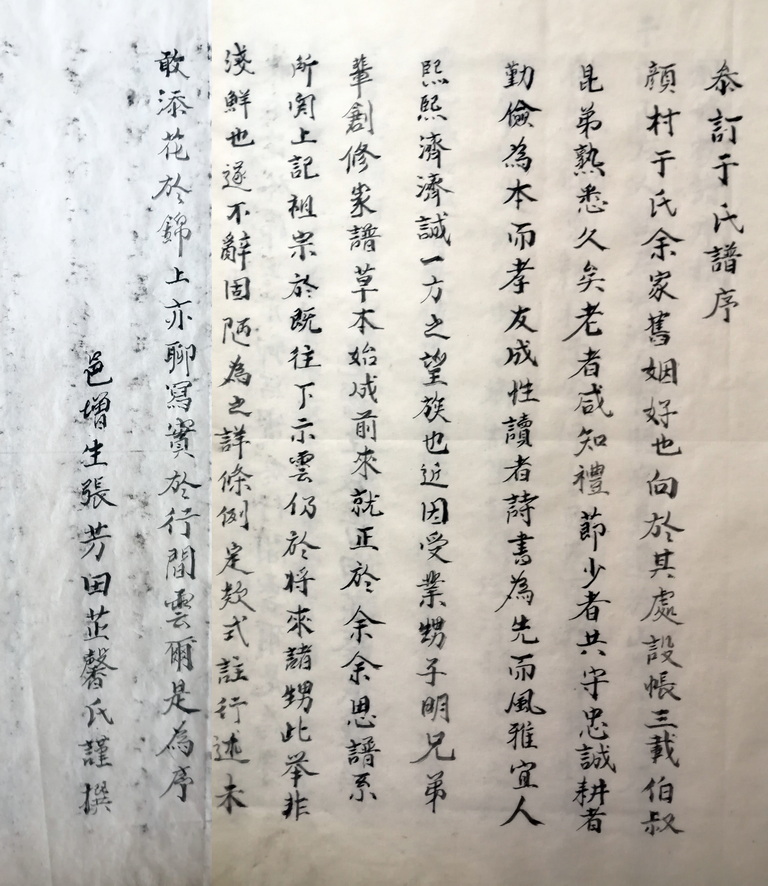 叅訂于氏譜序
顔村于氏余家舊姻好也向於其處設帳三載伯叔
昆弟熟悉久矣老者咸知禮節少者共守忠誠耕者
勤儉為本而孝友成性讀者詩書為先而風雅宜人
熙熙濟濟誠一方之望族也近因受業甥子明兄弟
輩創修家譜草本始成前來就正於余余思譜系
所関上記祖宗於既往下示雲仍於将來諸甥此举非
淺鮮也遂不辭固陋為之詳條例定欵式註行述未
敢添花於錦上亦聊冩實於行間雲爾是為序
邑增生張芳田芷馨氏謹撰